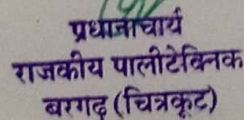 प्रधानाचार्य
राजकीय पालीटेक्निक
बरगढ़ (चित्रकूट)